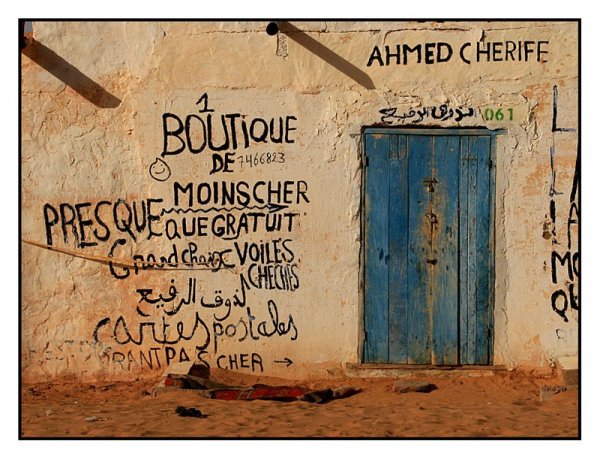 AHMED CHERIFE
الذوق الرفيع 061
1
BOUTIQUE
DE 7466823
MOINS CHER
PRESQUE QUE GRATUIT
Grand choix VOILES
CHECHES
الذوق الرفيع
cartes postales
RANT PAS CHER →
L
LA
MO
QU